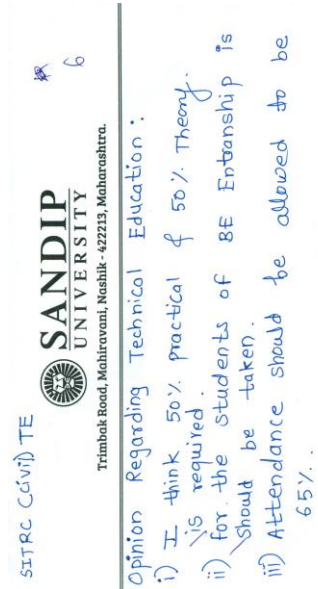 SITRC (Civil) TE
6
SANDIP
UNIVERSITY
Trimbak Road, Mahiravani, Nashik - 422213, Maharashtra.
Opinion Regarding Technical Education :
i) I think 50% practical & 50% Theory.
is required.
ii) for the students of BE Entranship is
should be taken.
iii) Attendance should be allowed to be
65%.